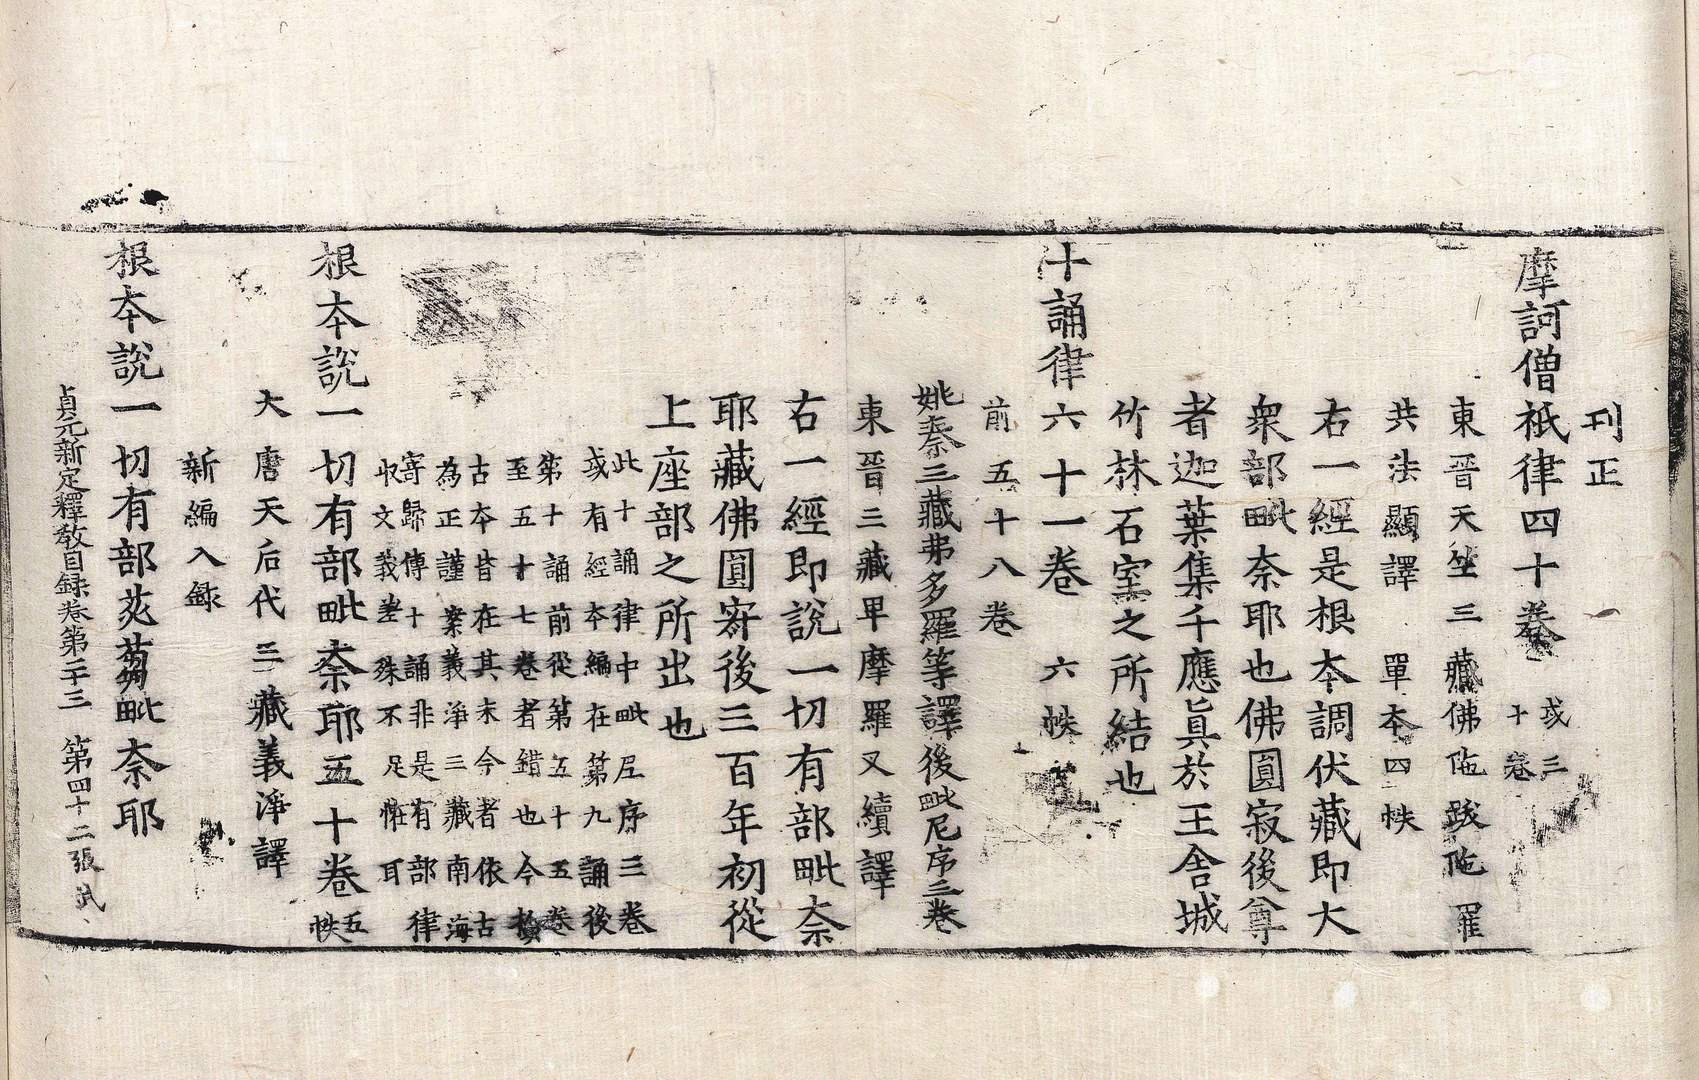 刊正
摩訶僧祇律四十卷 或三十卷
東晉天竺三藏佛陁跋陁羅
共法顯譯 單本四帙
右一經是根本調伏藏即大
衆部毗奈耶也佛圓寂後尊
者迦葉集千應真於王舍城
竹林石室之所結也
十誦律六十一卷 六帙
前五十八卷
姚秦三藏弗多羅等譯後毗尼序三卷
東晉三藏卑摩羅叉續譯
右一經即說一切有部毗奈
耶藏佛圓寂後三百年初從
上座部之所出也
此十誦律中毗尼序三卷
或有經本編在第九誦後
第十誦前從第五十五卷
至五十七卷者錯也今撿
古本皆在其末今者依古
為正謹案義淨三藏南海
寄歸傳十誦非是有部律
収文義差殊不足恠耳
根本說一切有部毗奈耶五十卷 五帙
大唐天后代三藏義淨譯
新編入錄
根本說一切有部苾蒭毗奈耶
貞元新定釋教目録卷第二十三 第四十二張 武